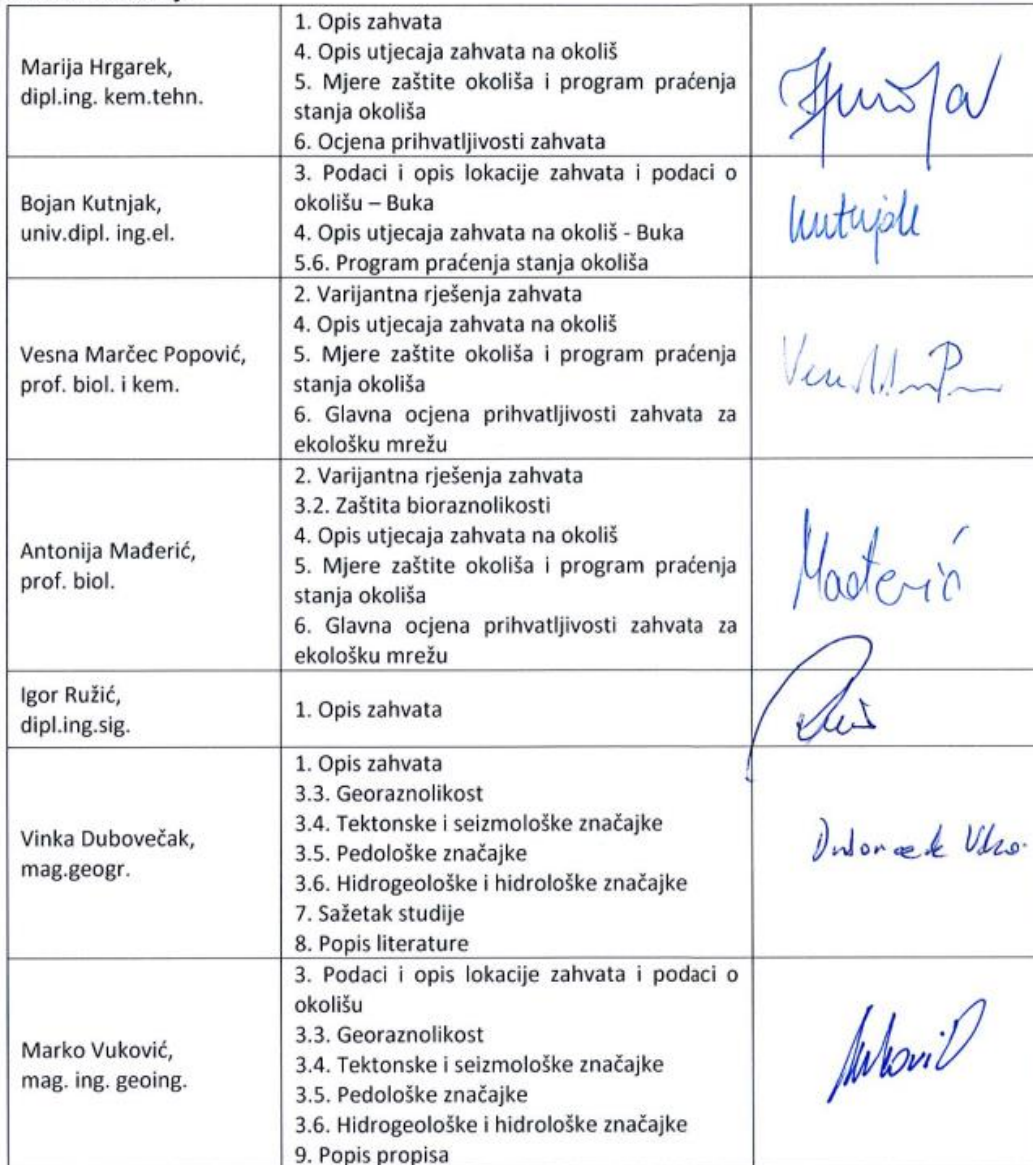 Marija Hrgarek,
dipl.ing. kem.tehn.
1. Opis zahvata
4. Opis utjecaja zahvata na okoliš
5. Mjere zaštite okoliša i program praćenja
stanja okoliša
6. Ocjena prihvatljivosti zahvata
Bojan Kutnjak,
univ.dipl. ing.el.
3. Podaci i opis lokacije zahvata i podaci o
okolišu – Buka
4. Opis utjecaja zahvata na okoliš - Buka
5.6. Program praćenja stanja okoliša
Kutnjak
Vesna Marčec Popović,
prof. biol. i kem.
2. Varijantna rješenja zahvata
4. Opis utjecaja zahvata na okoliš
5. Mjere zaštite okoliša i program praćenja
stanja okoliša
6. Glavna ocjena prihvatljivosti zahvata za
ekološku mrežu
Antonija Mađerić,
prof. biol.
2. Varijantna rješenja zahvata
3.2. Zaštita bioraznolikosti
4. Opis utjecaja zahvata na okoliš
5. Mjere zaštite okoliša i program praćenja
stanja okoliša
6. Glavna ocjena prihvatljivosti zahvata za
ekološku mrežu
Mađerić
Igor Ružić,
dipl.ing.sig.
1. Opis zahvata
Vinka Dubovečak,
mag.geogr.
1. Opis zahvata
3.3. Georaznolikost
3.4. Tektonske i seizmološke značajke
3.5. Pedološke značajke
3.6. Hidrogeološke i hidrološke značajke
7. Sažetak studije
8. Popis literature
Marko Vuković,
mag. ing. geoing.
3. Podaci i opis lokacije zahvata i podaci o
okolišu
3.3. Georaznolikost
3.4. Tektonske i seizmološke značajke
3.5. Pedološke značajke
3.6. Hidrogeološke i hidrološke značajke
9. Popis propisa